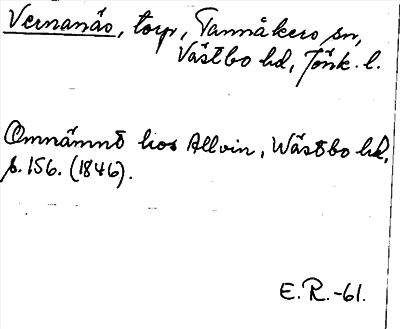 Vernanäs, torp, Tannåkers sn,
Västbo hd, Jönk. l.
Omnämnt hos Allvin, Wästbo hd,
s. 156. (1846).
E.R.-61.